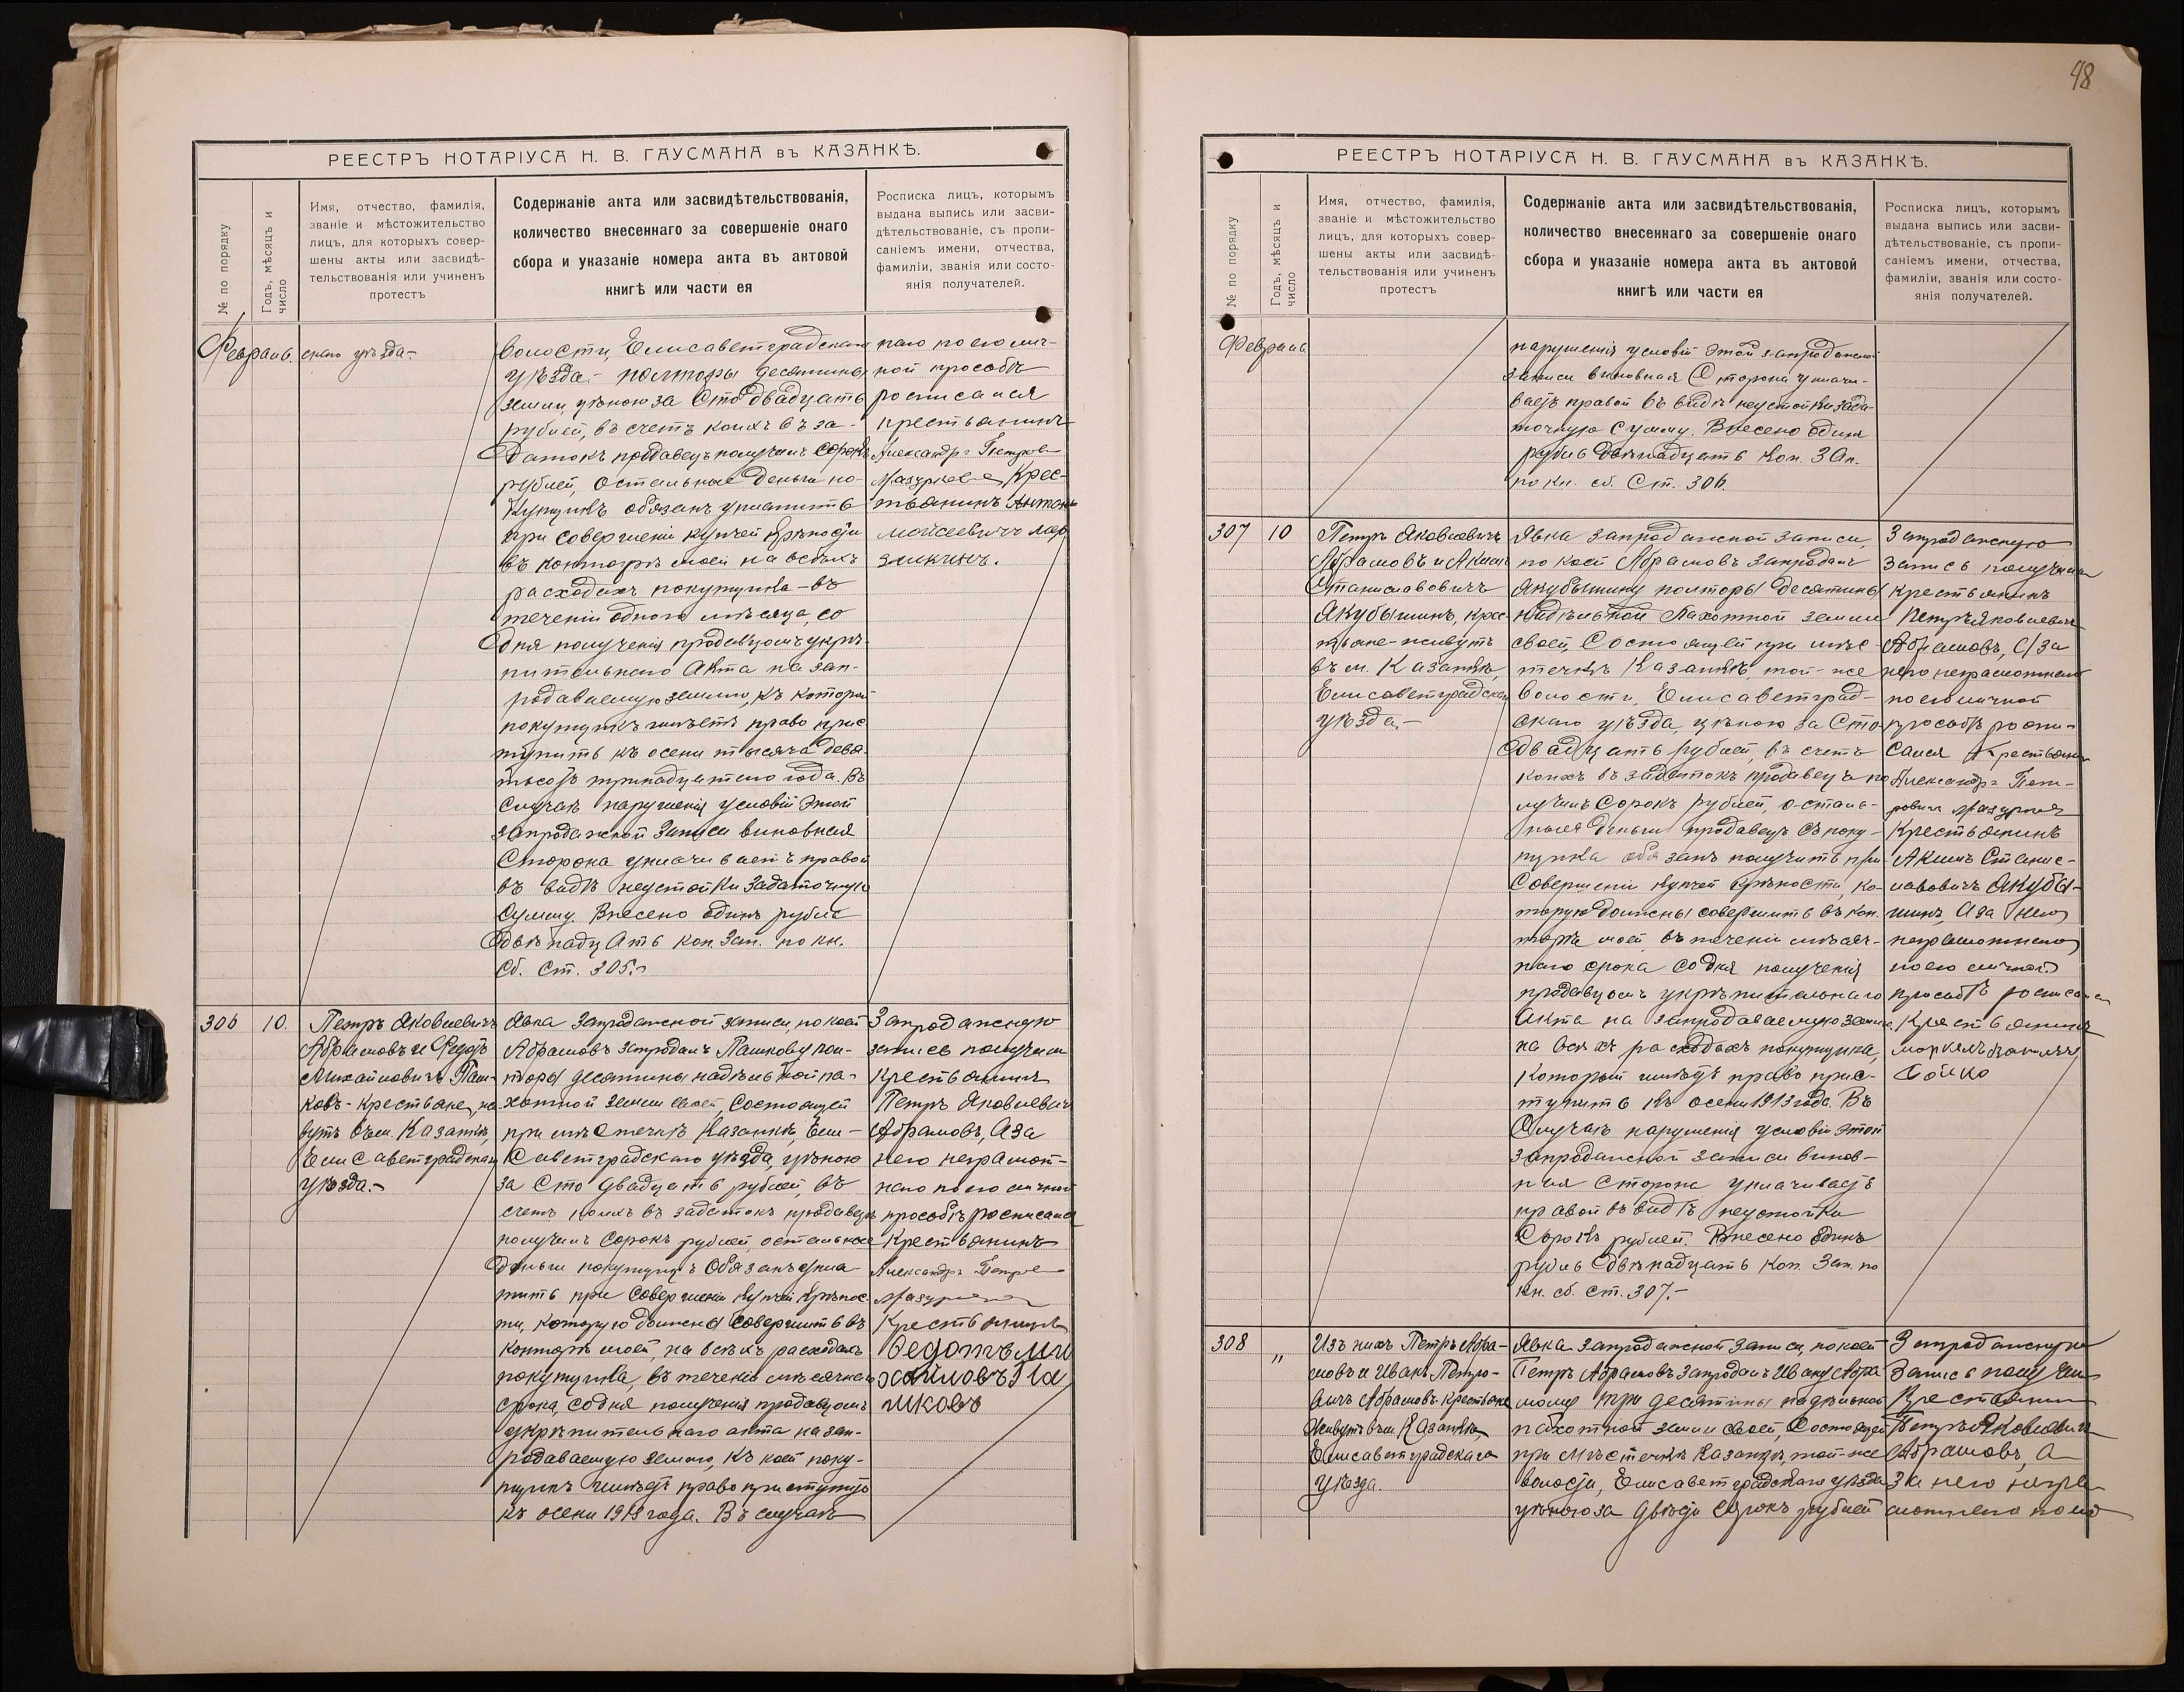 РЕЕСТРЪ НОТАРІУСА Н. В. ГАУСМАНА въ КАЗАНКѢ.
№ по порядку
Годъ, мѣсяцъ и
число
Имя, отчество, фамилія,
званіе и мѣстожительство
лицъ, для которыхъ совер-
шены акты или засвидѣ-
тельствованія или учиненъ
протестъ
Содержаніе акта или засвидѣтельствованія,
количество внесеннаго за совершеніе онаго
сбора и указаніе номера акта въ актовой
книгѣ или части ея
Росписка лицъ, которымъ
выдана выпись или засви-
дѣтельствованіе, съ пропи-
саніемъ имени, отчества,
фамиліи, званія или состо-
янія получателей.
скаго уѣзда.-
волости, Елисаветградскаго
уѣзда.- полторы десятины
земли, цѣною за Сто двадцать
рублей, въ счетъ коихъ въ за-
датокъ продавецъ получилъ сорокъ
рублей, остальные деньги по-
купщикъ обязанъ уплатить
при совершеніи купчей крѣпости
въ конторѣ моей на всѣхъ
расходахъ покупщика - въ
теченіи одного мѣсяца, со
дня полученія продавцомъ укрѣ-
пительнаго Акта на зап-
родаваемую землю, къ которой
покупщикъ имѣетъ право прис-
тупить къ осени тысяча девя-
тьсотъ тринадцатаго года. Въ
случаѣ нарушенія условій этой
запродажной записи виновная
Сторона уплачиваетъ правой
въ видѣ неустойки задаточную
Сумму. Внесено одинъ рубль
двѣнадцать коп. Зап. по кн.
Сб. Ст. 305.
наго по его лич-
ной просьбѣ
росписался
крестьянинъ
Александръ Петровъ
Крес-
тьянинъ Антонъ
Мойсеевичъ
306
10.
Петръ Яковлевичъ
Абрамовъ и Федотъ
Михайловичъ Паш-
ковъ - крестьяне, жи-
вутъ въ м. Казанкѣ,
Елисаветградскаго
уѣзда.-
Явка запродажной записи, по коей
Абрамовъ запродалъ Пашкову пол-
торы десятины надѣльной па-
хотной земли своей, Состоящей
при мѣстечкѣ Казанкѣ, Ели-
саветградскаго уѣзда, цѣною
за Сто двадцать рублей, въ
счетъ коихъ въ задатокъ продавецъ
получилъ Сорокъ рублей, остальные
деньги покупщикъ Обязанъ упла-
тить при совершеніи купчей крѣпос-
ти, которую должны совершить въ
конторѣ моей, на всѣхъ расходахъ
покупщика, въ теченіе мѣсячнаго
срока, со дня полученія продавцомъ
укрѣпительнаго акта на зап-
родаваемую землю, къ коей поку-
пщикъ имѣетъ право приступить
къ осени 1913 года. Въ случаѣ
Запродажную
запись получилъ
Крестьянинъ
Петръ Яковлевичъ
Абрамовъ, А за
него неграмот-
наго по его личной
просьбѣ росписался
Крестьянинъ
Александръ Петровъ
Крестьянинъ
Федотъ Ми
хайловъ Па
шковъ
48
РЕЕСТРЪ НОТАРІУСА Н. В. ГАУСМАНА въ КАЗАНКѢ.
№ по порядку
Годъ, мѣсяцъ и
число
Имя, отчество, фамилія,
званіе и мѣстожительство
лицъ, для которыхъ совер-
шены акты или засвидѣ-
тельствованія или учиненъ
протестъ
Содержаніе акта или засвидѣтельствованія,
количество внесеннаго за совершеніе онаго
сбора и указаніе номера акта въ актовой
книгѣ или части ея
Росписка лицъ, которымъ
выдана выпись или засви-
дѣтельствованіе, съ пропи-
саніемъ имени, отчества,
фамиліи, званія или состо-
янія получателей.
нарушенія условій этой запродажной
записи виновная Сторона уплачи-
ваетъ правой въ видѣ неустойки зада-
точную Сумму. Внесено одинъ
рубль двѣнадцать Коп. Зап.
по кн. сб. Ст. 306.
307
10
Петръ Яковлевичъ
Абрамовъ и Акимъ
Станиславовичъ
Якубышинъ, крес-
тьяне - живутъ
въ м. Казанкѣ,
Елисаветградскаго
уѣзда.-
Явка запродажной записи,
по коей Абрамовъ запродалъ
Якубышину полторы десятины
надѣльной пахотной земли
своей, Состоящей при мѣс-
течкѣ Казанкѣ, той-же
волости, Елисаветград-
скаго уѣзда, цѣною за Сто
двадцать рублей, въ счетъ
коихъ въ задатокъ продавецъ по-
лучилъ Сорокъ рублей, остал-
ныя деньги продавецъ съ поку-
пщика обязанъ получить при
Совершеніи купчей крѣпости, ко-
торую должны совершить въ кон-
торѣ моей, въ теченіи мѣсяч-
наго срока со дня полученія
продавцомъ укрѣпительнаго
Акта на запродаваемую землю
на всѣхъ расходахъ покупщика,
который имѣетъ право прис-
тупить къ осени 1913 года. Въ
Случаѣ нарушенія условій этой
запродажной записи винов-
ная Сторона уплачиваетъ
правой въ видѣ неустойки
Сорокъ рублей. Внесено одинъ
рубль двѣнадцать Коп. Зап. по
кн. сб. ст. 307.-
Запродажную
запись получилъ
крестьянинъ
Петръ Яковлевичъ
Абрамовъ, А за
него неграмотнаго
по его личной
просьбѣ роспи-
сался крестьянинъ
Александръ Пет-
ровичъ
Крестьянинъ
Акимъ Станис-
лавовичъ Якубы-
шинъ, А за него
неграмотнаго
по его личной
просьбѣ росписался
Крестьянинъ
308
"
Изъ нихъ Петръ Абра-
мовъ и Иванъ Петро-
вичъ Абрамовъ крестьяне
Живутъ въ м. Казанкѣ,
Елисаветградскаго
уѣзда.
Явка запродажной записи, по коей
Петръ Абрамовъ запродалъ Ивану Абра-
мову три десятины надѣльной
пахотной земли своей, Состоящей
при мѣстечкѣ Казанкѣ, той-же
волости, Елисаветградскаго уѣзда
цѣною за двѣсти сорокъ рублей
Запродажную
Запись получилъ
Крестьянинъ
Петръ Яковлевичъ
Абрамовъ, А
за него негра-
мотнаго по его